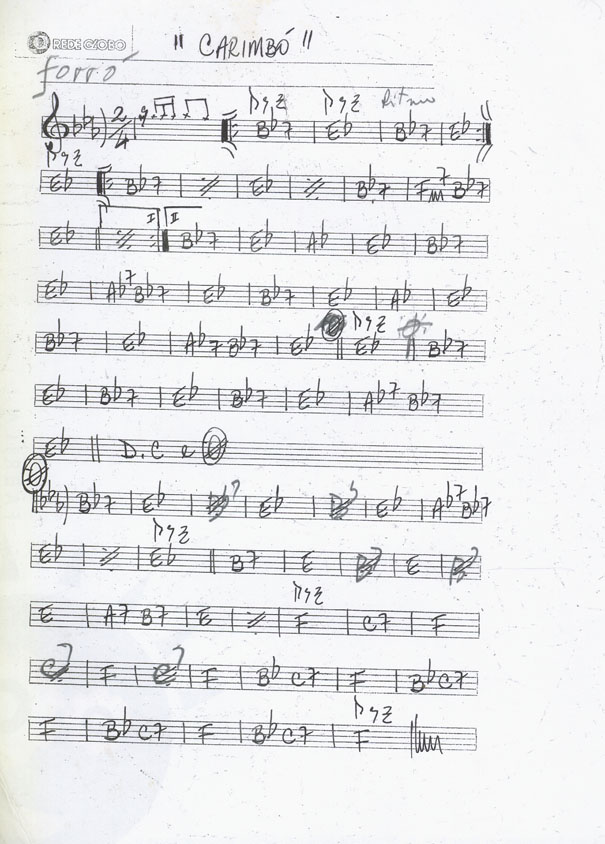 REDE GLOBO " CARIMBÓ "
forró
Ritmo
2/4 Bb7 | Eb | Bb7 | Eb
Eb Bb7 | ٪ | Eb | ٪ | Bb7 | Fm7 Bb7
Eb || ٪ I II Bb7 | Eb | Ab | Eb | Bb7
Eb | Ab7 Bb7 | Eb | Bb7 | Eb | Ab | Eb
Bb7 | Eb | Ab7 Bb7 | Eb || Eb || Bb7
Eb | Bb7 | Eb | Bb7 | Eb | Ab7 Bb7
Eb || D.C e
Bb7 | Eb | Eb | Eb | Ab7 Bb7
Eb | ٪ | Eb || B7 | E | E
E | A7 B7 | E | ٪ | F | C7 | F
F | F | Bb C7 | F | Bb C7
F | Bb C7 | F | Bb C7 | F